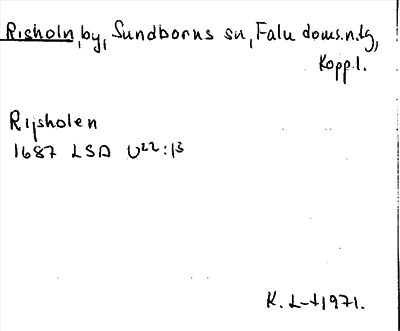 Risholn, by, Sundborns sn, Falu doms.n.tg,
Kopp.l.
Rijsholen
1687 LSA U22:13
K. L-t 1971.